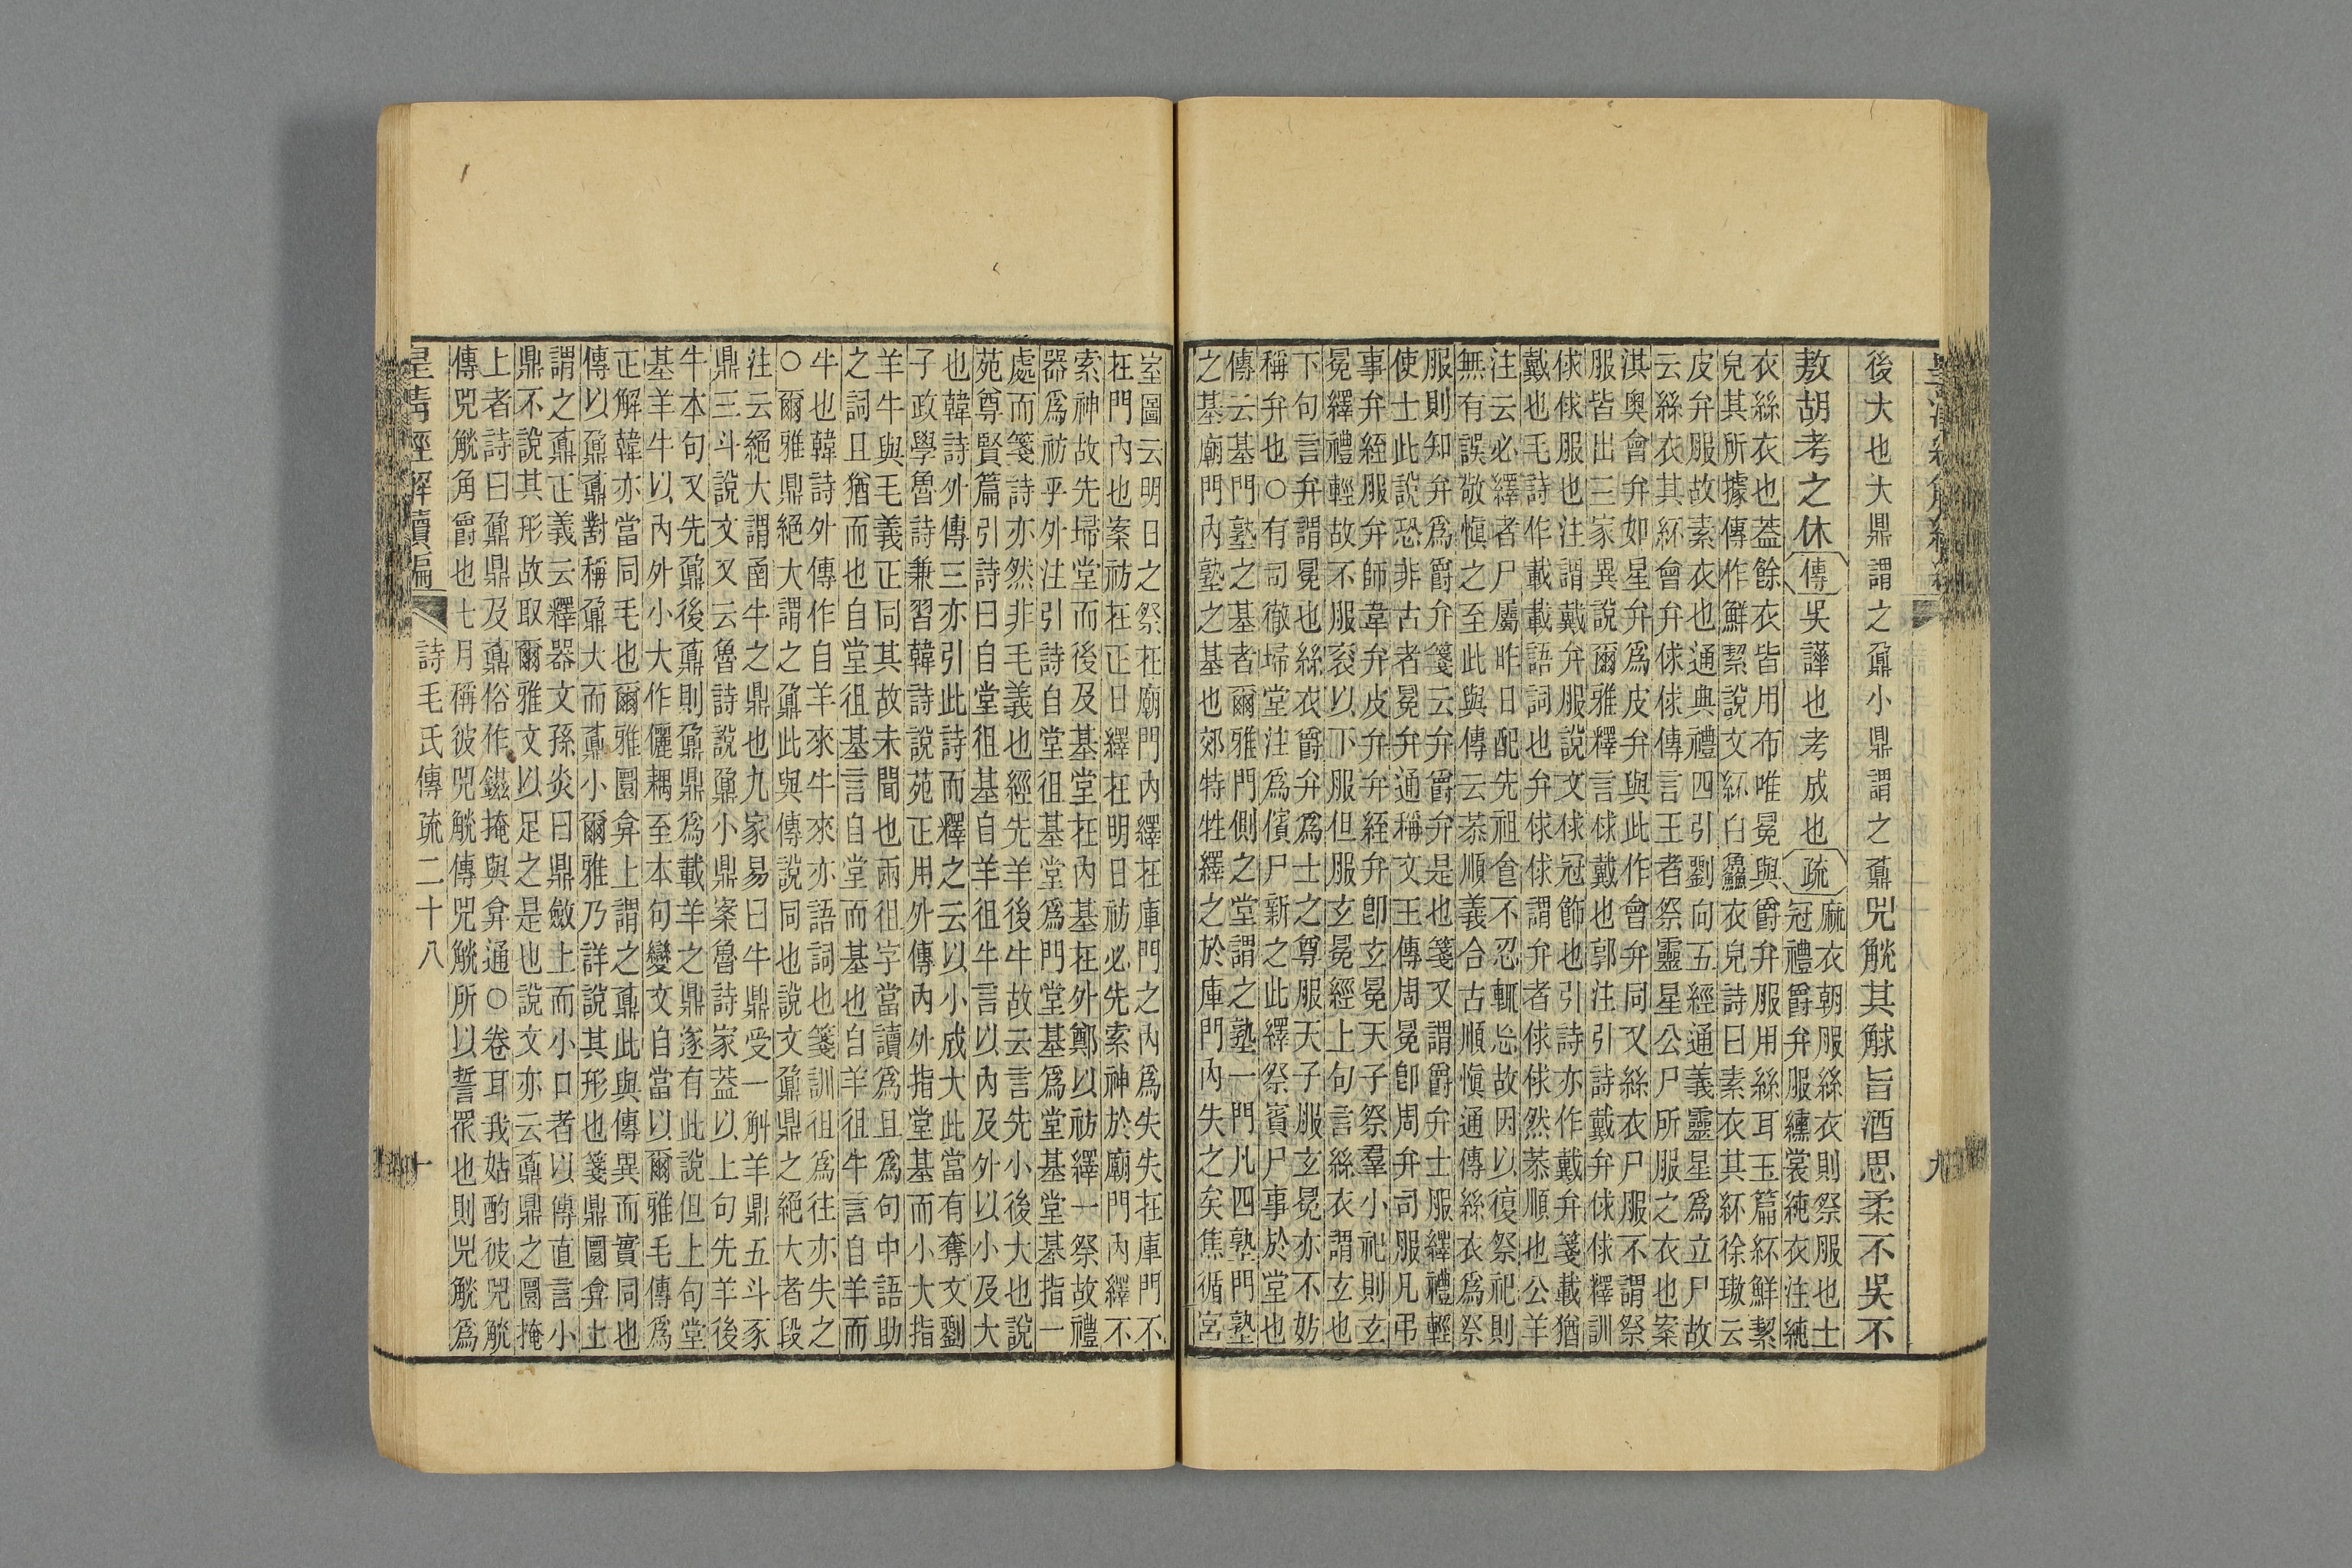 後大也大鼎謂之鼐小鼎謂之鼒兕觥其觩旨酒思柔不吳不
敖胡考之休傳吳譁也考成也疏麻衣朝服絲衣則祭服也士
冠禮爵弁服纁裳純衣注純
衣絲衣也葢餘衣皆用布唯冕與爵弁服用絲耳玉篇紑鮮絜
皃其所據傳作鮮絜說文紑白鱻衣皃詩曰素衣其紑徐璈云
皮弁服故素衣也通典禮四引劉向五經通義靈星為立尸故
云絲衣其紑會弁俅俅傳言王者祭靈星公尸所服之衣也案
淇奧會弁如星弁為皮弁與此作會弁同又絲衣尸服不謂祭
服皆出三家異說爾雅釋言俅戴也郭注引詩戴弁俅俅釋訓
俅俅服也注謂戴弁服說文俅冠飾也引詩亦作戴弁箋載猶
戴也毛詩作載載語詞也弁俅俅謂弁者俅俅然恭順也公羊
注云必繹者尸屬昨日配先祖食不忍輒忘故因以復祭祀則
無有誤敬愼之至此與傳云恭順義合古順愼通傳絲衣為祭
服則知弁為爵弁箋云弁爵弁是也箋又謂爵弁士服繹禮輕
使士此說恐非古者冕弁通稱文王傳周冕卽周弁司服凡弔
事弁絰服弁師韋弁皮弁弁絰弁卽玄冕天子祭羣小祀則玄
冕繹禮輕故不服袞以下服但服玄冕經上句言絲衣謂玄也
下句言弁謂冕也絲衣爵弁為士之尊服天子服玄冕亦不妨
稱弁也○有司徹埽堂注為儐尸新之此繹祭賓尸事於堂也
傳云基門塾之基者爾雅門側之堂謂之塾一門凡四塾門塾
之基廟門內塾之基也郊特牲繹之於庫門內失之矣焦循宮
室圖云明日之祭在廟門內繹在庫門之內為失失在庫門不
在門內也案祊在正日繹在明日祊必先索神於廟門內繹不
索神故先埽堂而後及基堂在內基在外鄭以祊繹一祭故禮
器為祊乎外注引詩自堂徂基堂為門堂基為堂基堂基指一
處而箋詩亦然非毛義也經先羊後牛故云言先小後大也說
苑尊賢篇引詩曰自堂徂基自羊徂牛言以內及外以小及大
也韓詩外傳三亦引此詩而釋之云以小成大此當有奪文劉
子政學魯詩兼習韓詩說苑正用外傳內外指堂基而小大指
羊牛與毛義正同其故未聞也兩徂字當讀為且為句中語助
之詞且猶而也自堂徂基言自堂而基也自羊徂牛言自羊而
牛也韓詩外傳作自羊來牛來亦語詞也箋訓徂為往亦失之
○爾雅鼎絕大謂之鼐此與傳說同也說文鼐鼎之絕大者段
注云絕大謂函牛之鼎也九家易曰牛鼎受一斛羊鼎五斗豕
鼎三斗說文又云魯詩說鼐小鼎案魯詩家葢以上句先羊後
牛本句又先鼐後鼒則鼐鼎為載羊之鼎遂有此說但上句堂
基羊牛以內外小大作儷耦至本句變文自當以爾雅毛傳為
正解韓亦當同毛也爾雅圜弇上謂之鼒此與傳異而實同也
傳以鼐鼒對稱鼐大而鼒小爾雅乃詳說其形也箋鼎圜弇上
謂之鼒正義云釋器文孫炎曰鼎斂上而小口者以傳直言小
鼎不說其形故取爾雅文以足之是也說文亦云鼒鼎之圜掩
上者詩曰鼐鼎及鼒俗作鎡掩與弇通○卷耳我姑酌彼兕觥
傳兕觥角爵也七月稱彼兕觥傳兕觥所以誓眾也則兕觥為
皇清經解續編 詩毛氏傳疏二十八 十